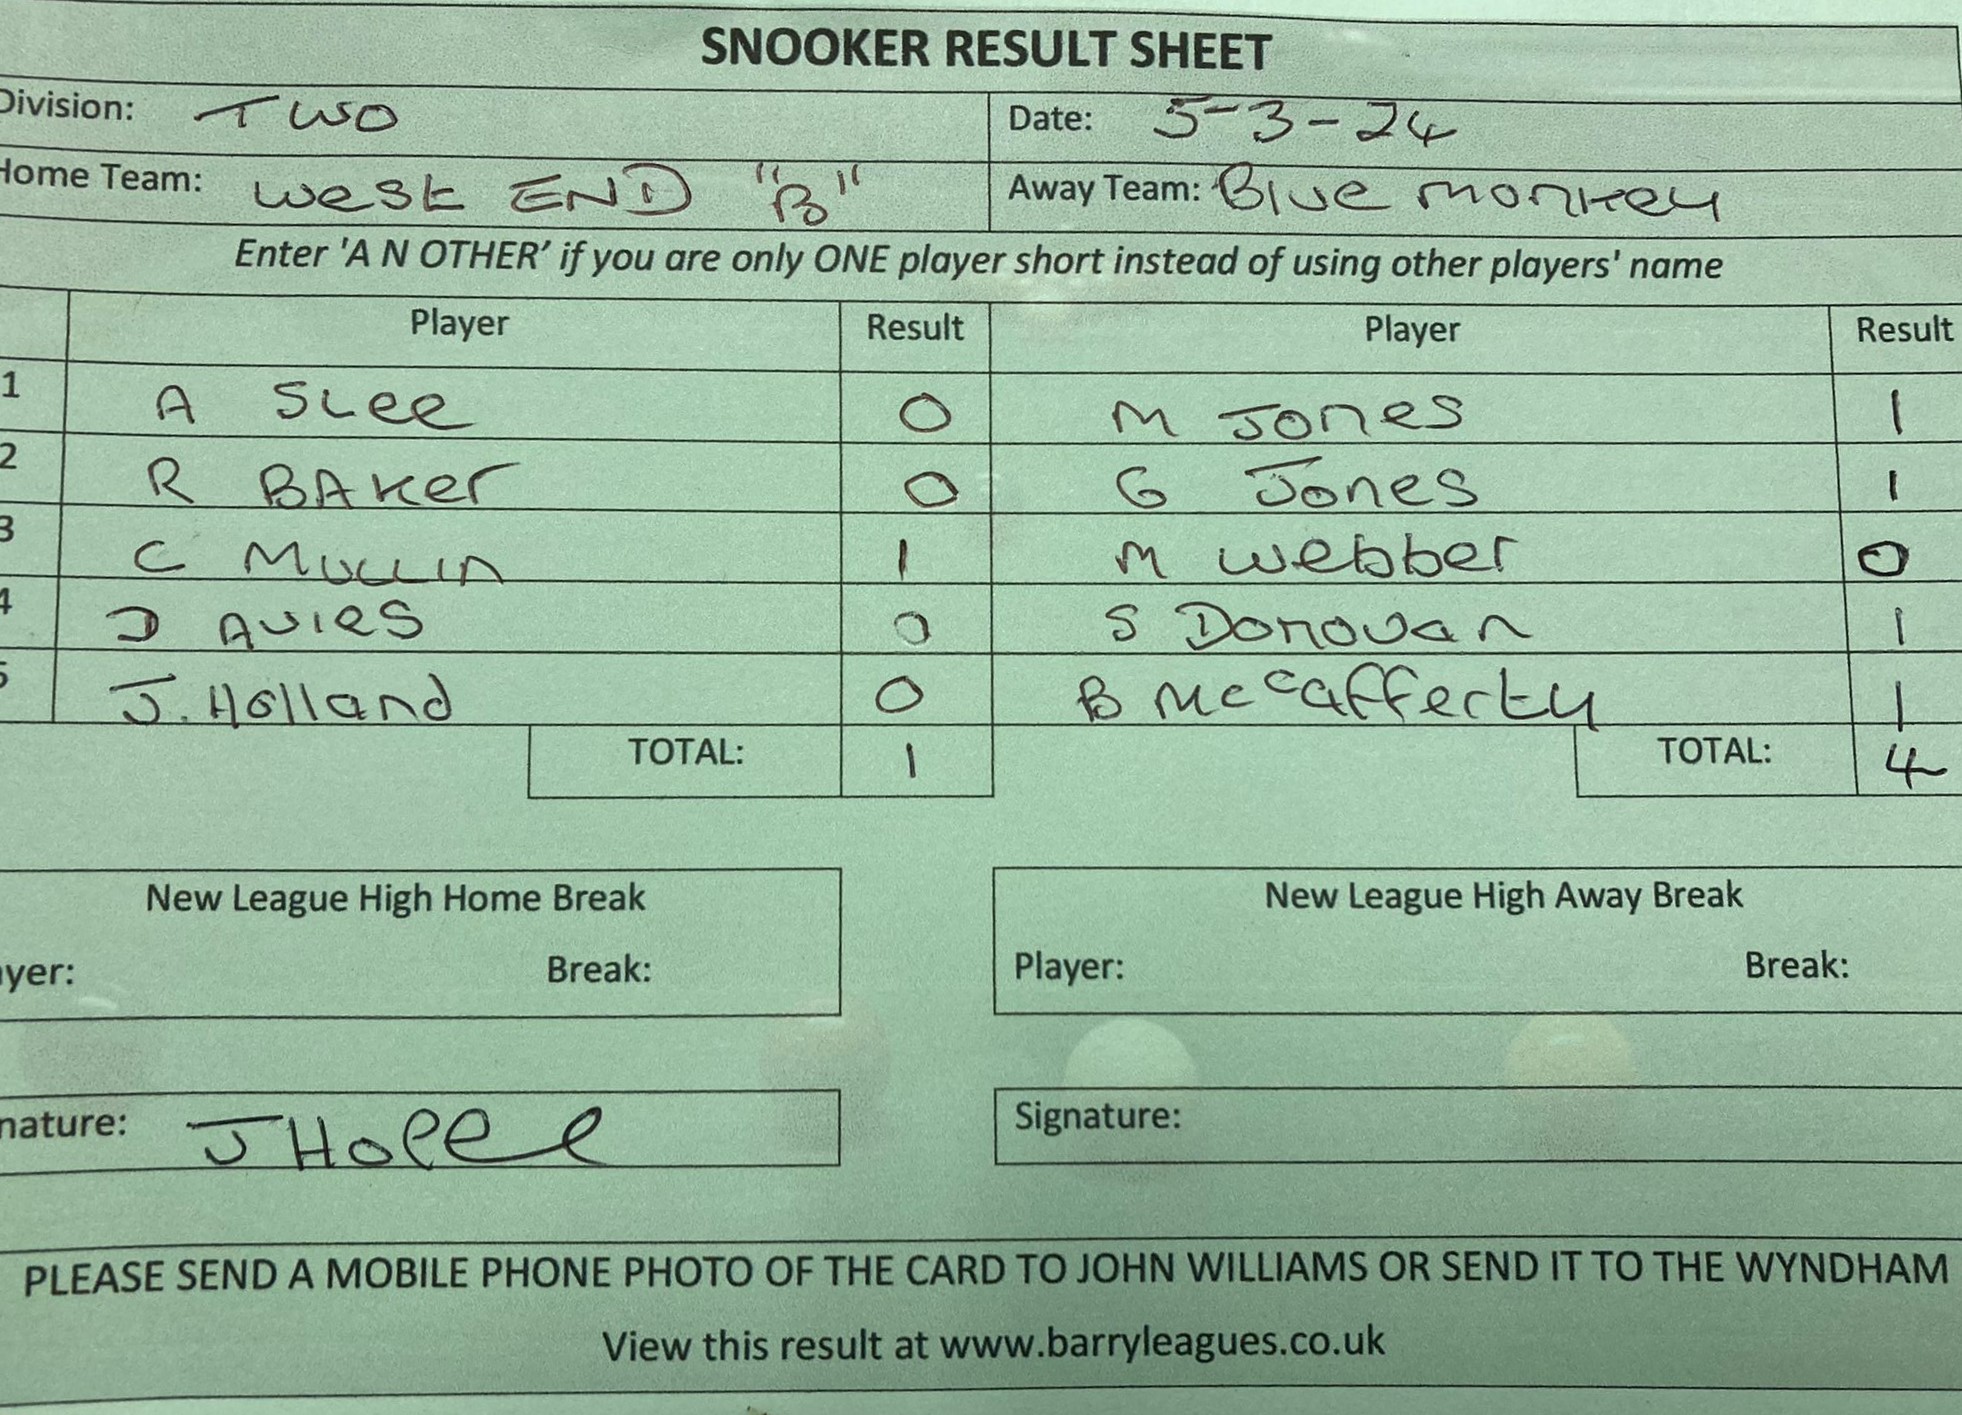 SNOOKER RESULT SHEET
Division: TWO Date: 5-3-24
Home Team: West END "B" Away Team: Blue monkey
Enter 'A N OTHER' if you are only ONE player short instead of using other players' name
Player Result Player Result
1 A SLee 0 M Jones 1
2 R BAKer 0 G Jones 1
3 C MULLIN 1 M Webber 0
4 D AVIES 0 S Donovan 1
5 J. Holland 0 B McCafferty 1
TOTAL: 1 TOTAL: 4
New League High Home Break New League High Away Break
yer: Break: Player: Break:
nature: J Holl Signature:
PLEASE SEND A MOBILE PHONE PHOTO OF THE CARD TO JOHN WILLIAMS OR SEND IT TO THE WYNDHAM
View this result at www.barryleagues.co.uk